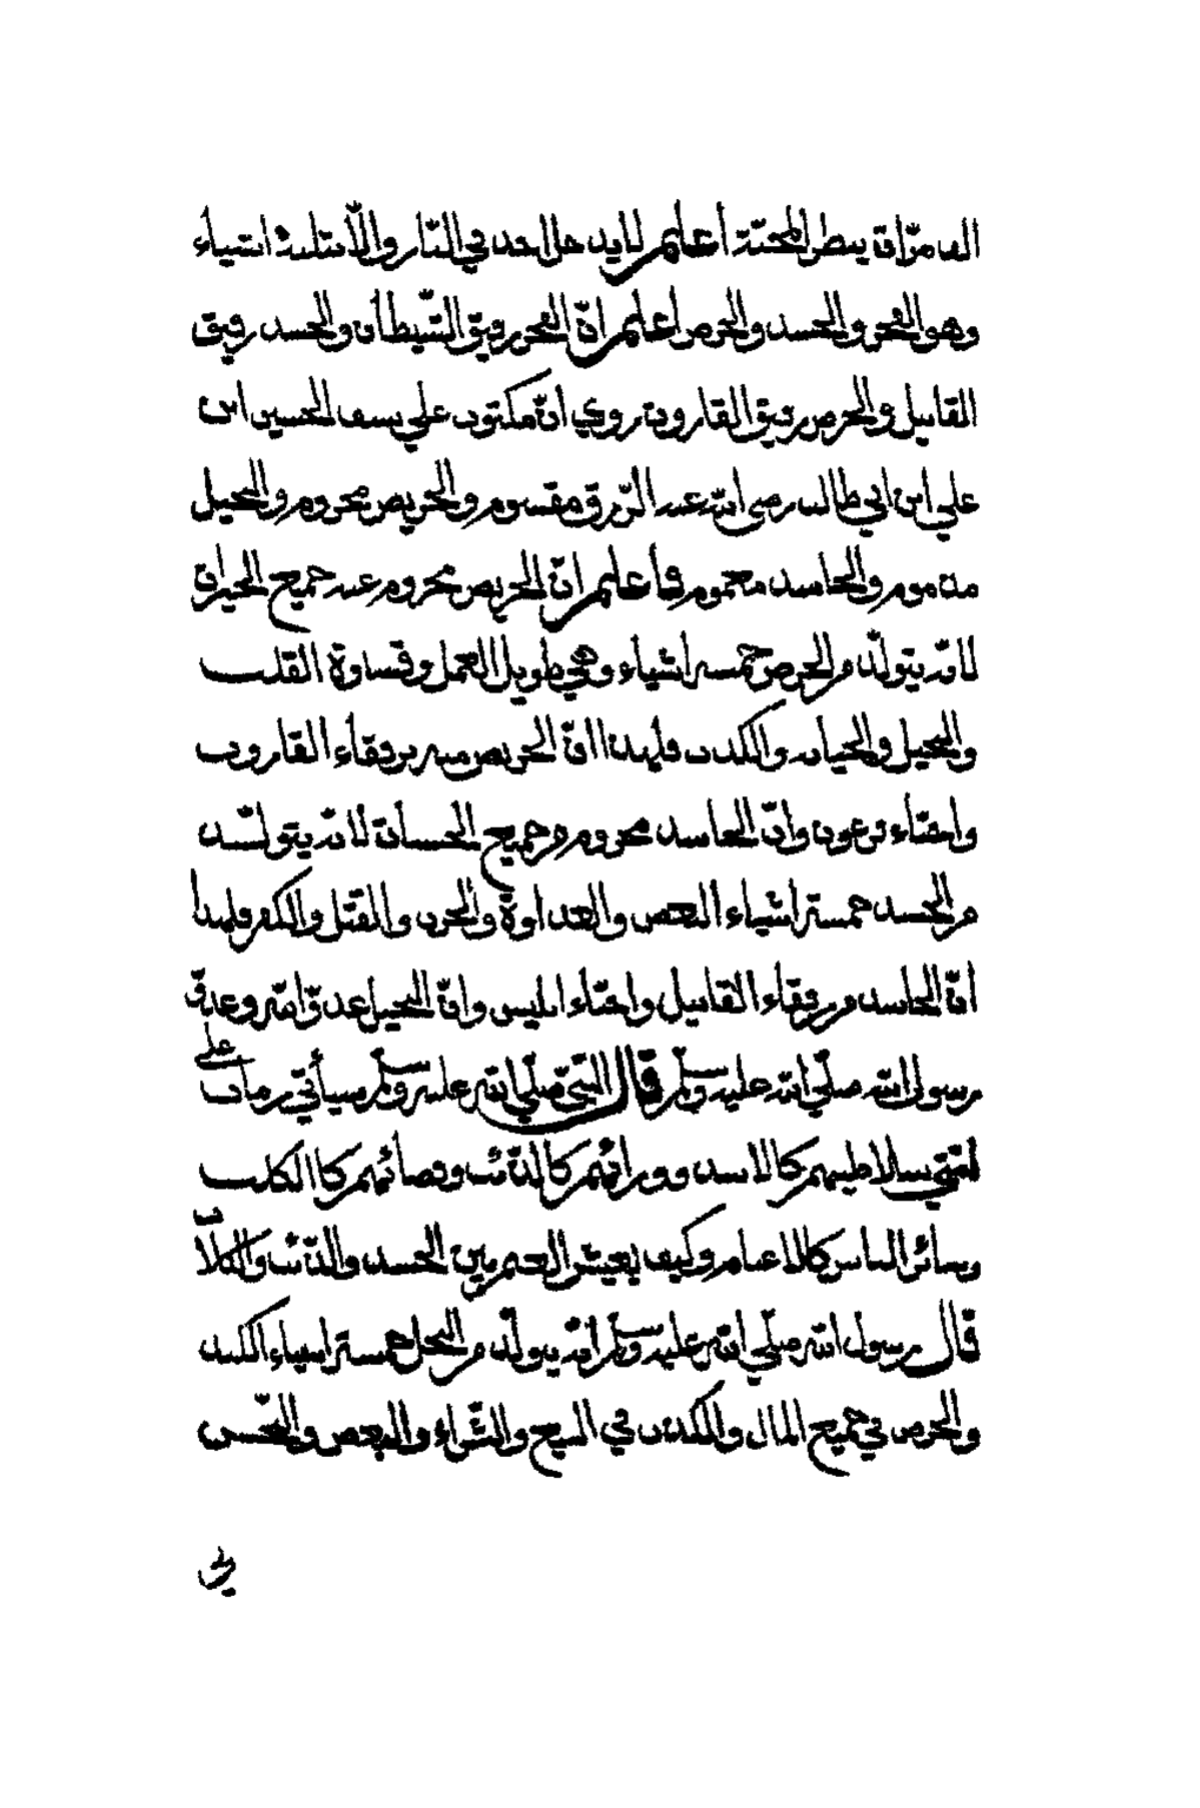 الف مرّات ينظر المحبّة أعلم لا يدخل احد في النّار والّا بثلثة اشياء
وهو الفخر والحسد والحرص أعلم انّ الفخر رفيق الشّيطان والحسد رفيق
القابيل والحرص رفيق القارون روي انّ مكتوب علي سيف الحسين ابن
علي ابن ابي طالب رضي الله عنه الرّزق مقسوم والحريص محروم والبخيل
مذموم والحاسد مغموم فأعلم انّ الحريص محروم عنه جميع الخيرات
لانّه يتولّد من الحرص خمسه اشياء وهي طويل العمل وقساوة القلب
والبخيل والخيانه والكذب فلهذا انّ الحريص منه رفقاء القارون
واحبّاء فرعون وانّ الحاسد محروم من جميع الحسنات لانّه يتولّد
من الحسد خمسة اشياء البغض والعداوة والحزن والقتل والكفر فلهذا
انّ الحاسد من رفقاء القابيل واحبّاء ابليس وانّ البخيل عدوّ الله وعدوّ
رسول الله صلّي الله عليه وسلّم قال النّبيّ صلّي الله عليه وسلّم سيأتي زمان علي
امّتي سلاطينهم كالاسد ووزرائهم كالذّئب وقضائهم كاالكلب
وسائر الناس كالاغنام وكيف يعيش الغنم بين الحسد والذّئب والكلاّ
قال رسول الله صلّي الله عليه وسلّم انّه يتولّد من البخل خمسة اشياء الكذب
والحرص في جميع المال والكذب في البيع والشّراء والبغض والبخس
في